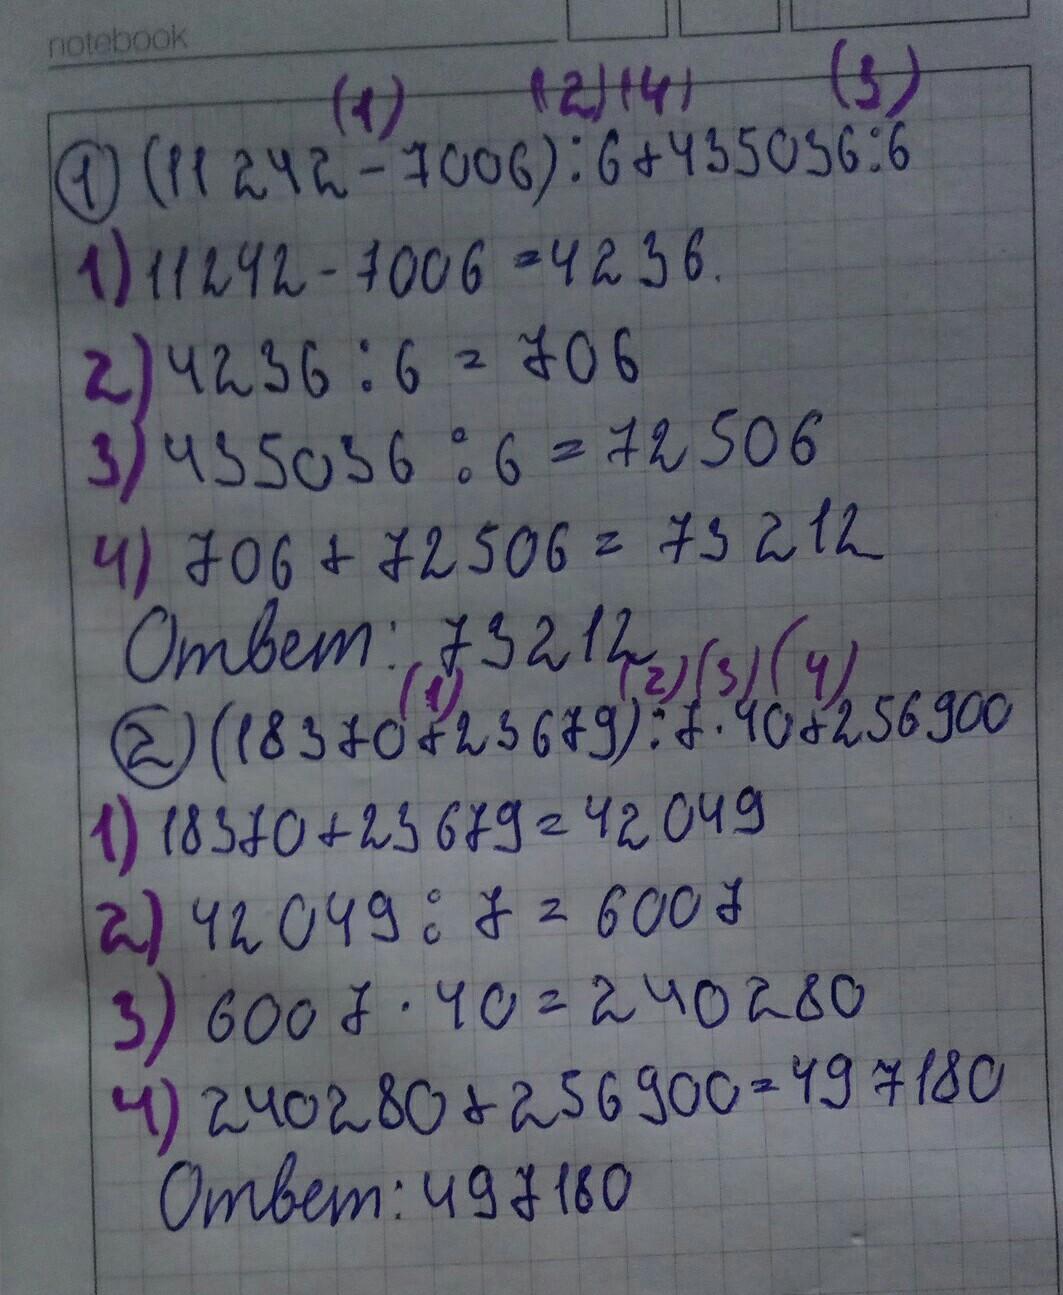 notebook
(1) (2) (4) (3)
① (11242-7006):6+435036:6
1) 11242-7006=4236.
2) 4236:6=706
3) 435036:6=72506
4) 706+72506=73212
Ответ: 73212
(1) (2) (3) (4)
② (18370+23679):7·40+256900
1) 18370+23679=42049
2) 42049:7=6007
3) 6007·40=240280
4) 240280+256900=497180
Ответ: 497180